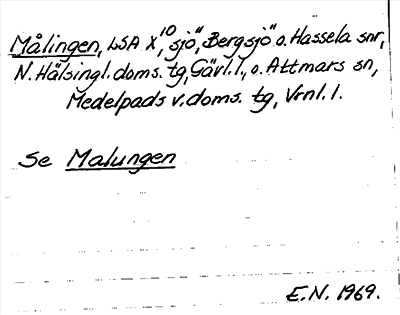 Målingen, LSA X¹⁰, "sjö", Bergsjö o. Hassela snr,
N. Hälsingl. doms. tg, Gävl. l., o. Attmars sn,
Medelpads v. doms. tg, Vrnl. l.
Se Malungen
E.N. 1969.